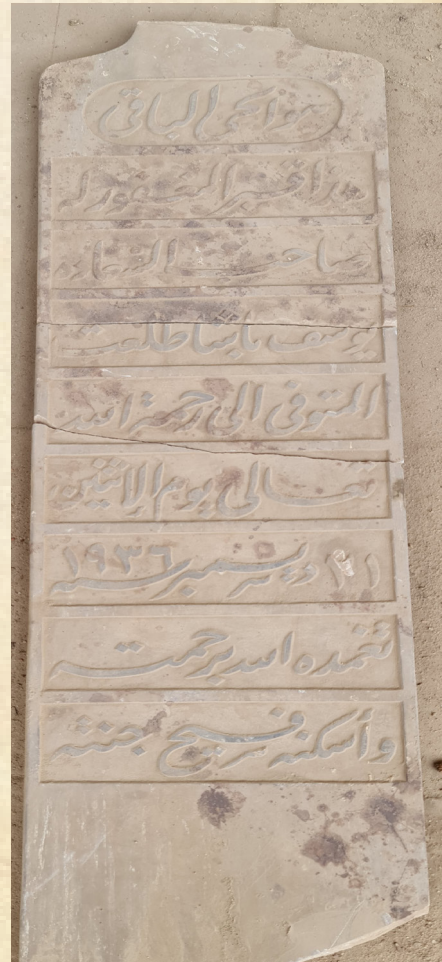 هو الحي الباقي
هذا قبر المغفور له
صاحب السعادة
يوسف باشا طلعت
المتوفى الى رحمة الله
تعالى يوم الإثنين
٢١ ديسمبر سنة ١٩٣٦
تغمده الله برحمته
وأسكنه فسيح جنته